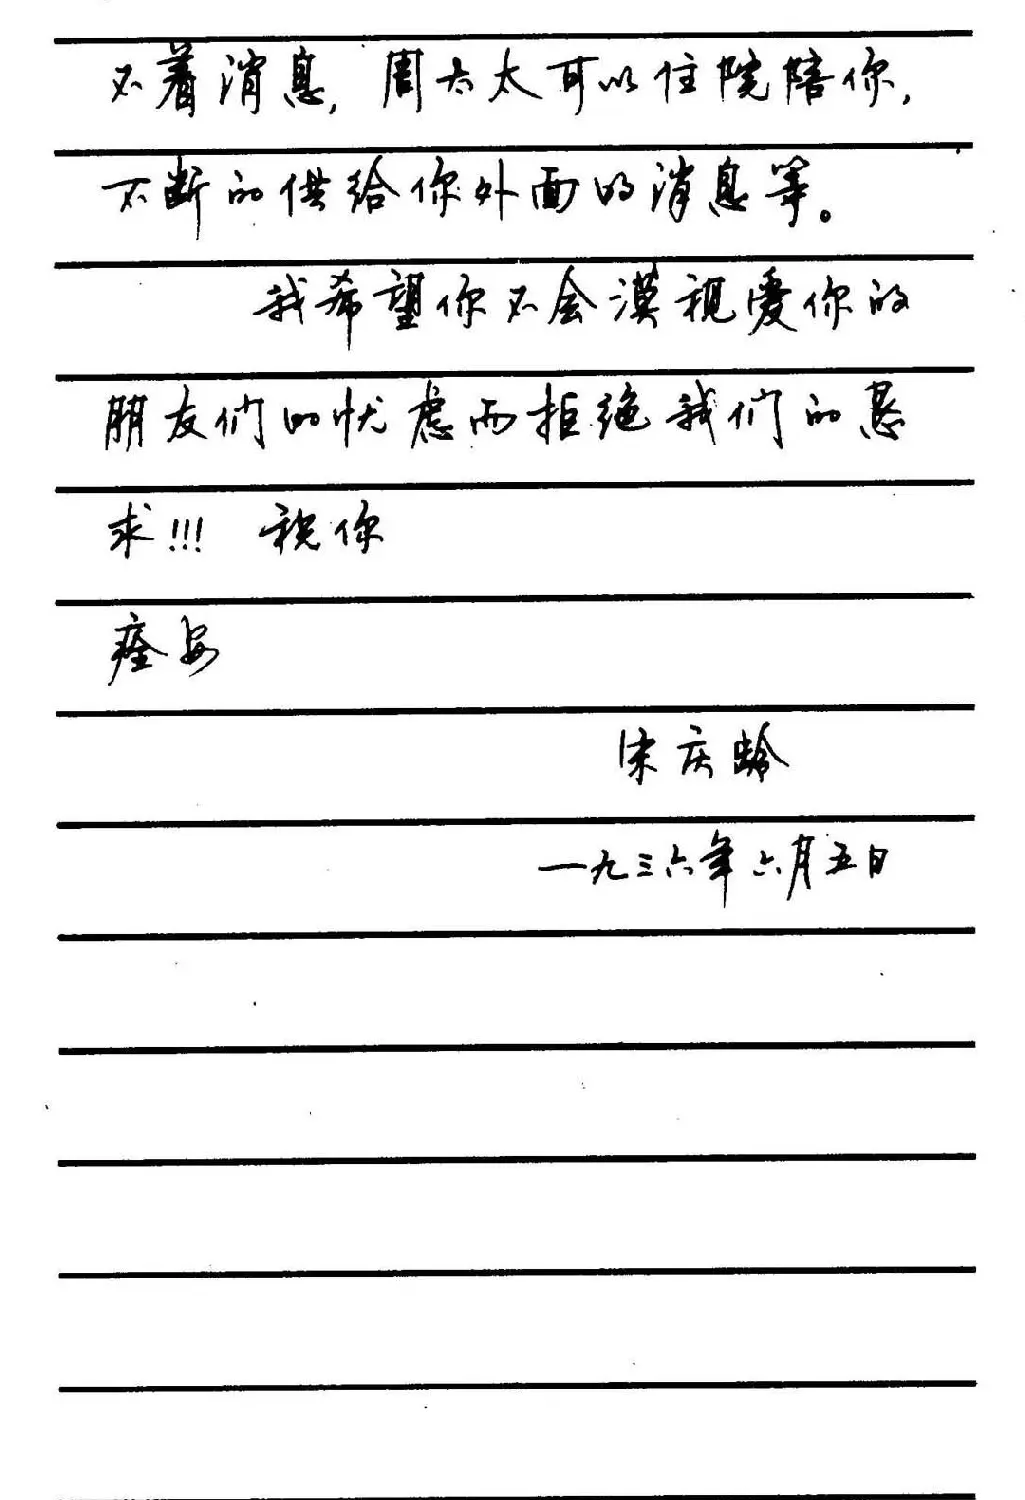 不着消息，周太太可以住院陪你，
不断的供给你外面的消息等。
我希望你不会漠视爱你的
朋友们的忧虑而拒绝我们的恳
求!!! 祝你
痊安
宋庆龄
一九三六年六月五日